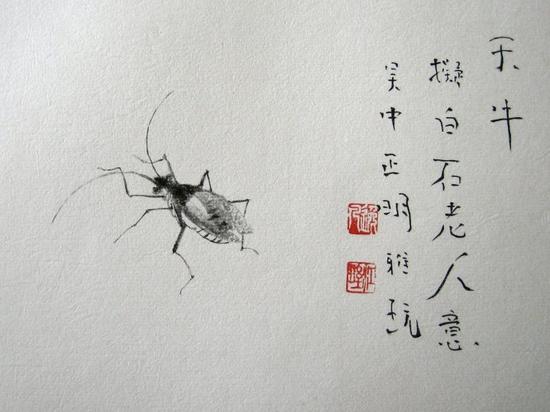 天牛
擬白石老人意
吴中正明雅玩